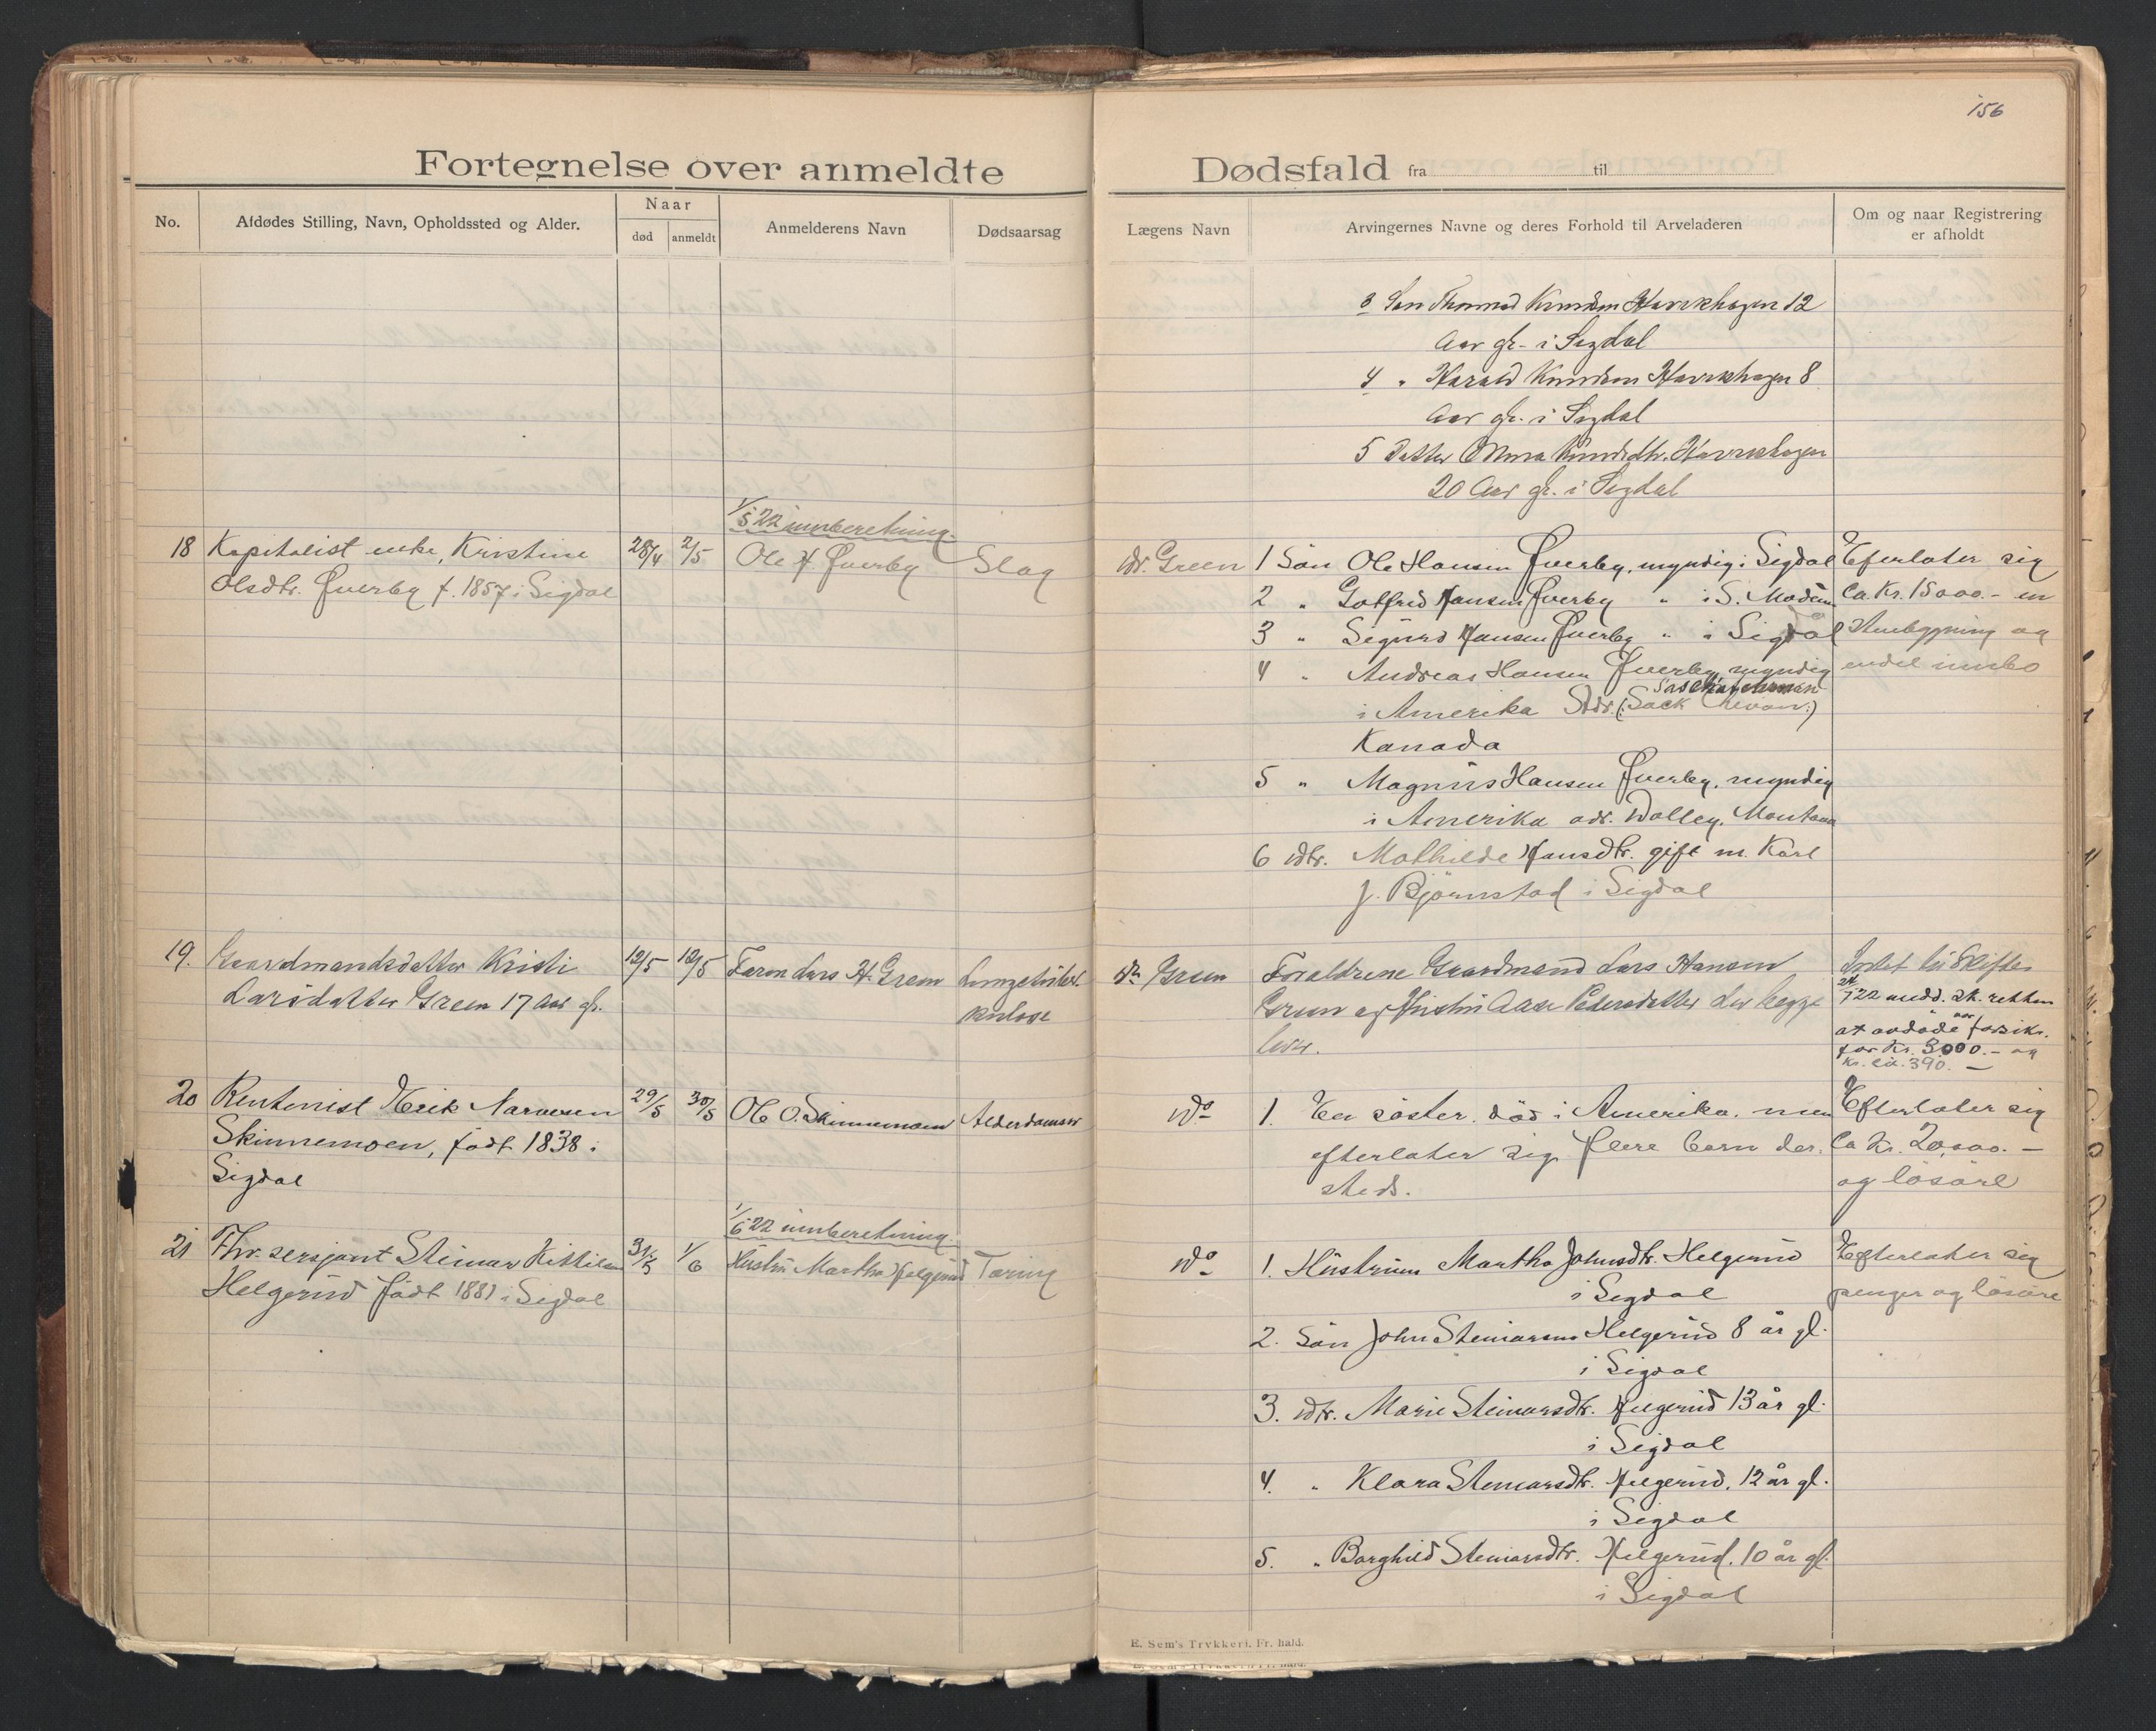 156
Fortegnelse over anmeldte Dødsfald fra til
No.
Afdødes Stilling, Navn, Opholdssted og Alder.
Naar
død
anmeldt
Anmelderens Navn
Dødsaarsag
Lægens Navn
Arvingernes Navne og deres Forhold til Arveladeren
Om og naar Registrering
er afholdt
3 Søn Thomas Knudsen Havrkhagen 12
Aar gl. i Sigdal
4 " Harald Knudsen Havrkhagen 8
Aar gl. i Sigdal
5 Datter Knudsdtr. Havrkhagen
20 Aar gl. i Sigdal
1/5 22 innberetning.
18 Kapitalist enke, Kristine
Olsdtr. Øverby f. 1857 i Sigdal
28/4
2/5
Ole H. Øverby
Slag
dr. Green
1 Sön Ole Hansen Øverby, myndig i Sigdal
2 " Gotfred Hansen Øverby " i S. Modum
3 " Sigurd Hansen Øverby " i Sigdal
4 " Andreas Hansen Øverby myndig
i Amerika Adr. (: Sack :)
Kanada
5 " Magnus Hansen Øverby, myndig
i Amerika adr. Dolley, Montana
6 dtr. Mathilde Hansdtr. gift m. Karl
J. Björnstad i Sigdal
Efterlater sig
Ca. Kr. 15000.- en
stuebygning og
endel innbo
19. Gaardmandsdatter Kristi
Larsdatter Green 17 Aar gl.
12/5
12/5
Faren Lars H. Green
Lungetuberkulose
dr Green
Foraldrene Gaardmand Lars Hansen
Green og Hustru Aase Pedersdatter der begge
lever.
Intet til Skifte
22 medd. sk. retten
at avdöde var forsikr.
for Kr. 3000.- og
kr. ca. 390. -
20 Rentenist Erik Narvesen
Skinnemoen, födt 1838 i
Sigdal
29/5
30/5
Ole O. Skinnemoen
Alderdomssv
do
1. En söster, död i Amerika, men
efterlater sig flere barn der-
steds.
Efterlater sig
Ca Kr. 20,000. -
og lösöre
1/6 22 innberetning.
21 Fhv. sersjant Steinar Kittilsen
Helgerud födt 1881 i Sigdal
31/5
1/6
Hustru Martha Helgerud
Tæring
do
1. Hustruen Martha Johnsdtr. Helgerud
i Sigdal
2. Sön John Steinarsen Helgerud 8 år gl.
i Sigdal
3. dtr. Marie Steinarsdtr. Helgerud 13 år gl.
i Sigdal
4. " Klara Steinarsdtr. Helgerud, 12 år gl.
i Sigdal
5. " Borghild Steinarsdtr. Helgerud, 10 år gl.
i Sigdal
Efterlater sig
penger og lösöre
E. Sem's Trykkeri, Fr. hald.